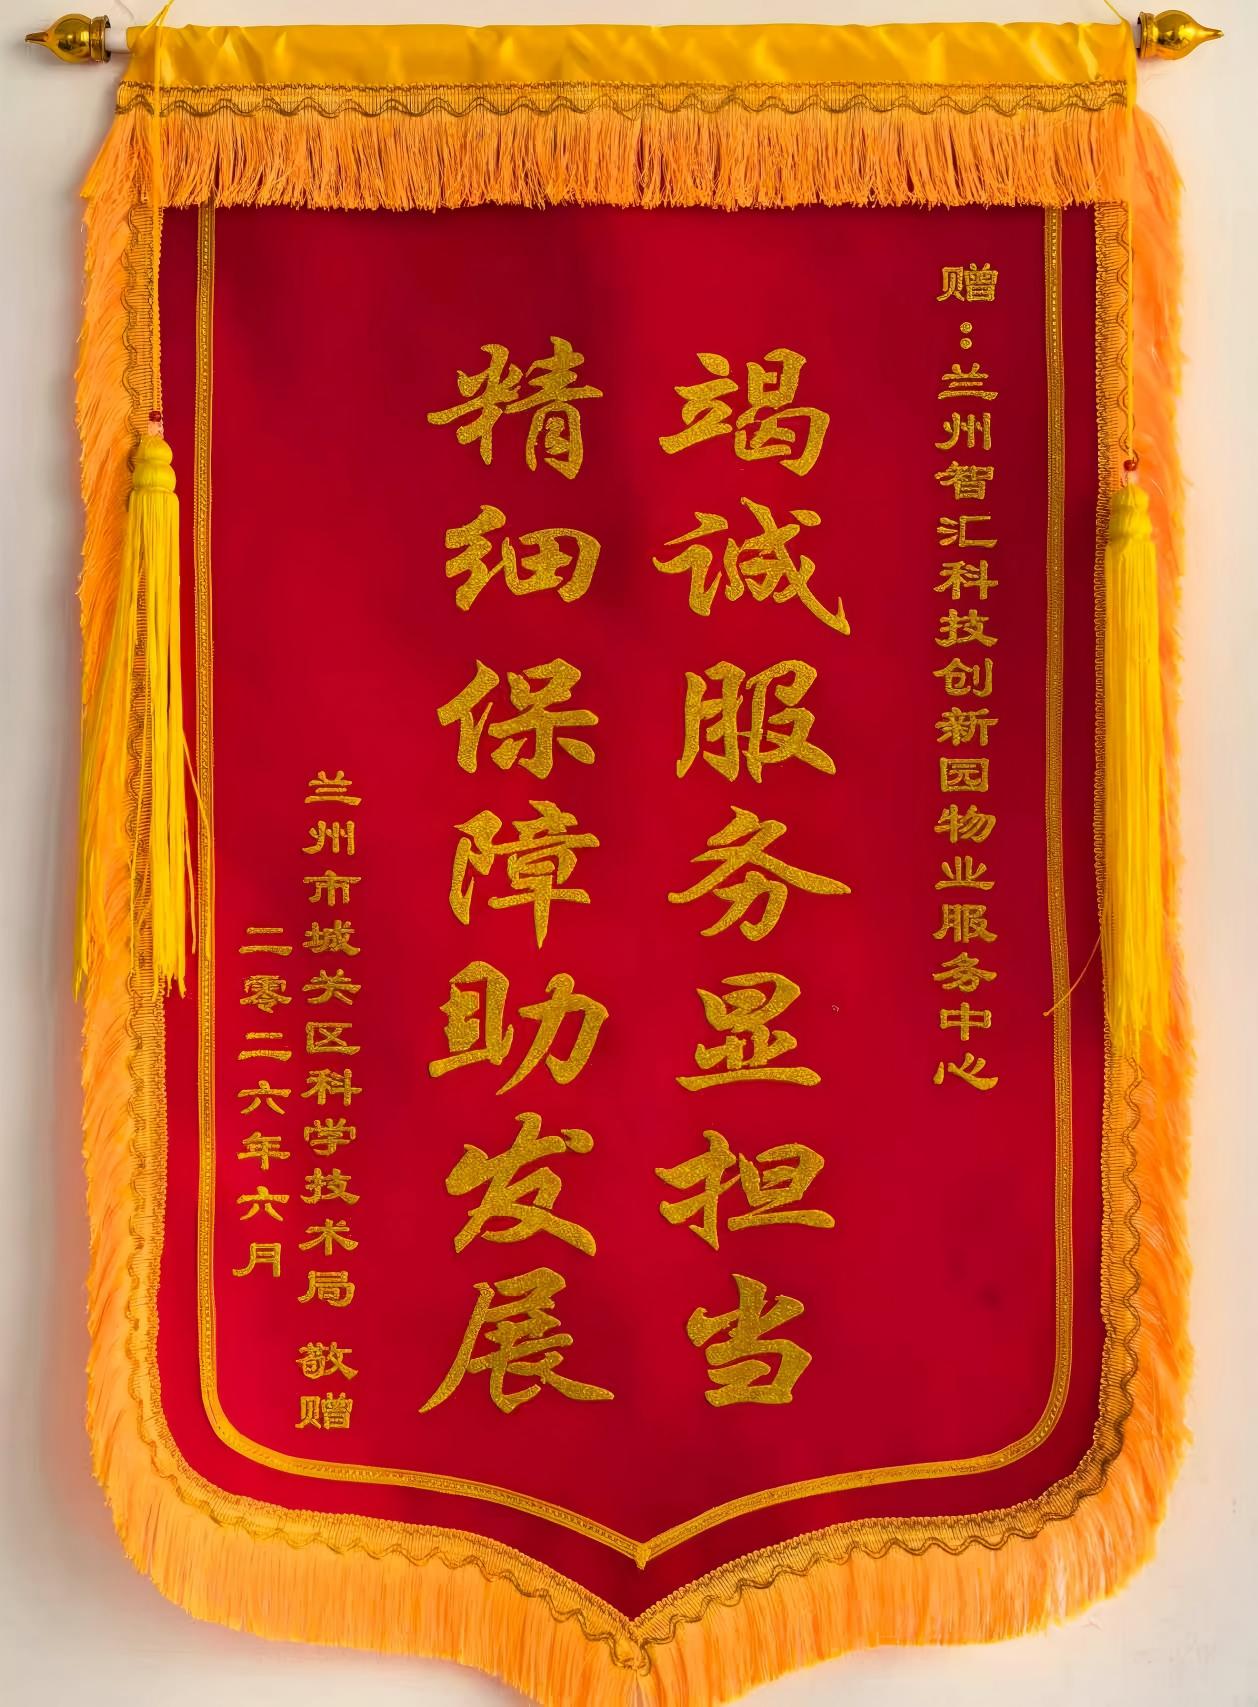 赠：兰州智汇科技创新园物业服务中心
竭诚服务显担当
精细保障助发展
兰州市城关区科学技术局 敬赠
二零二六年六月